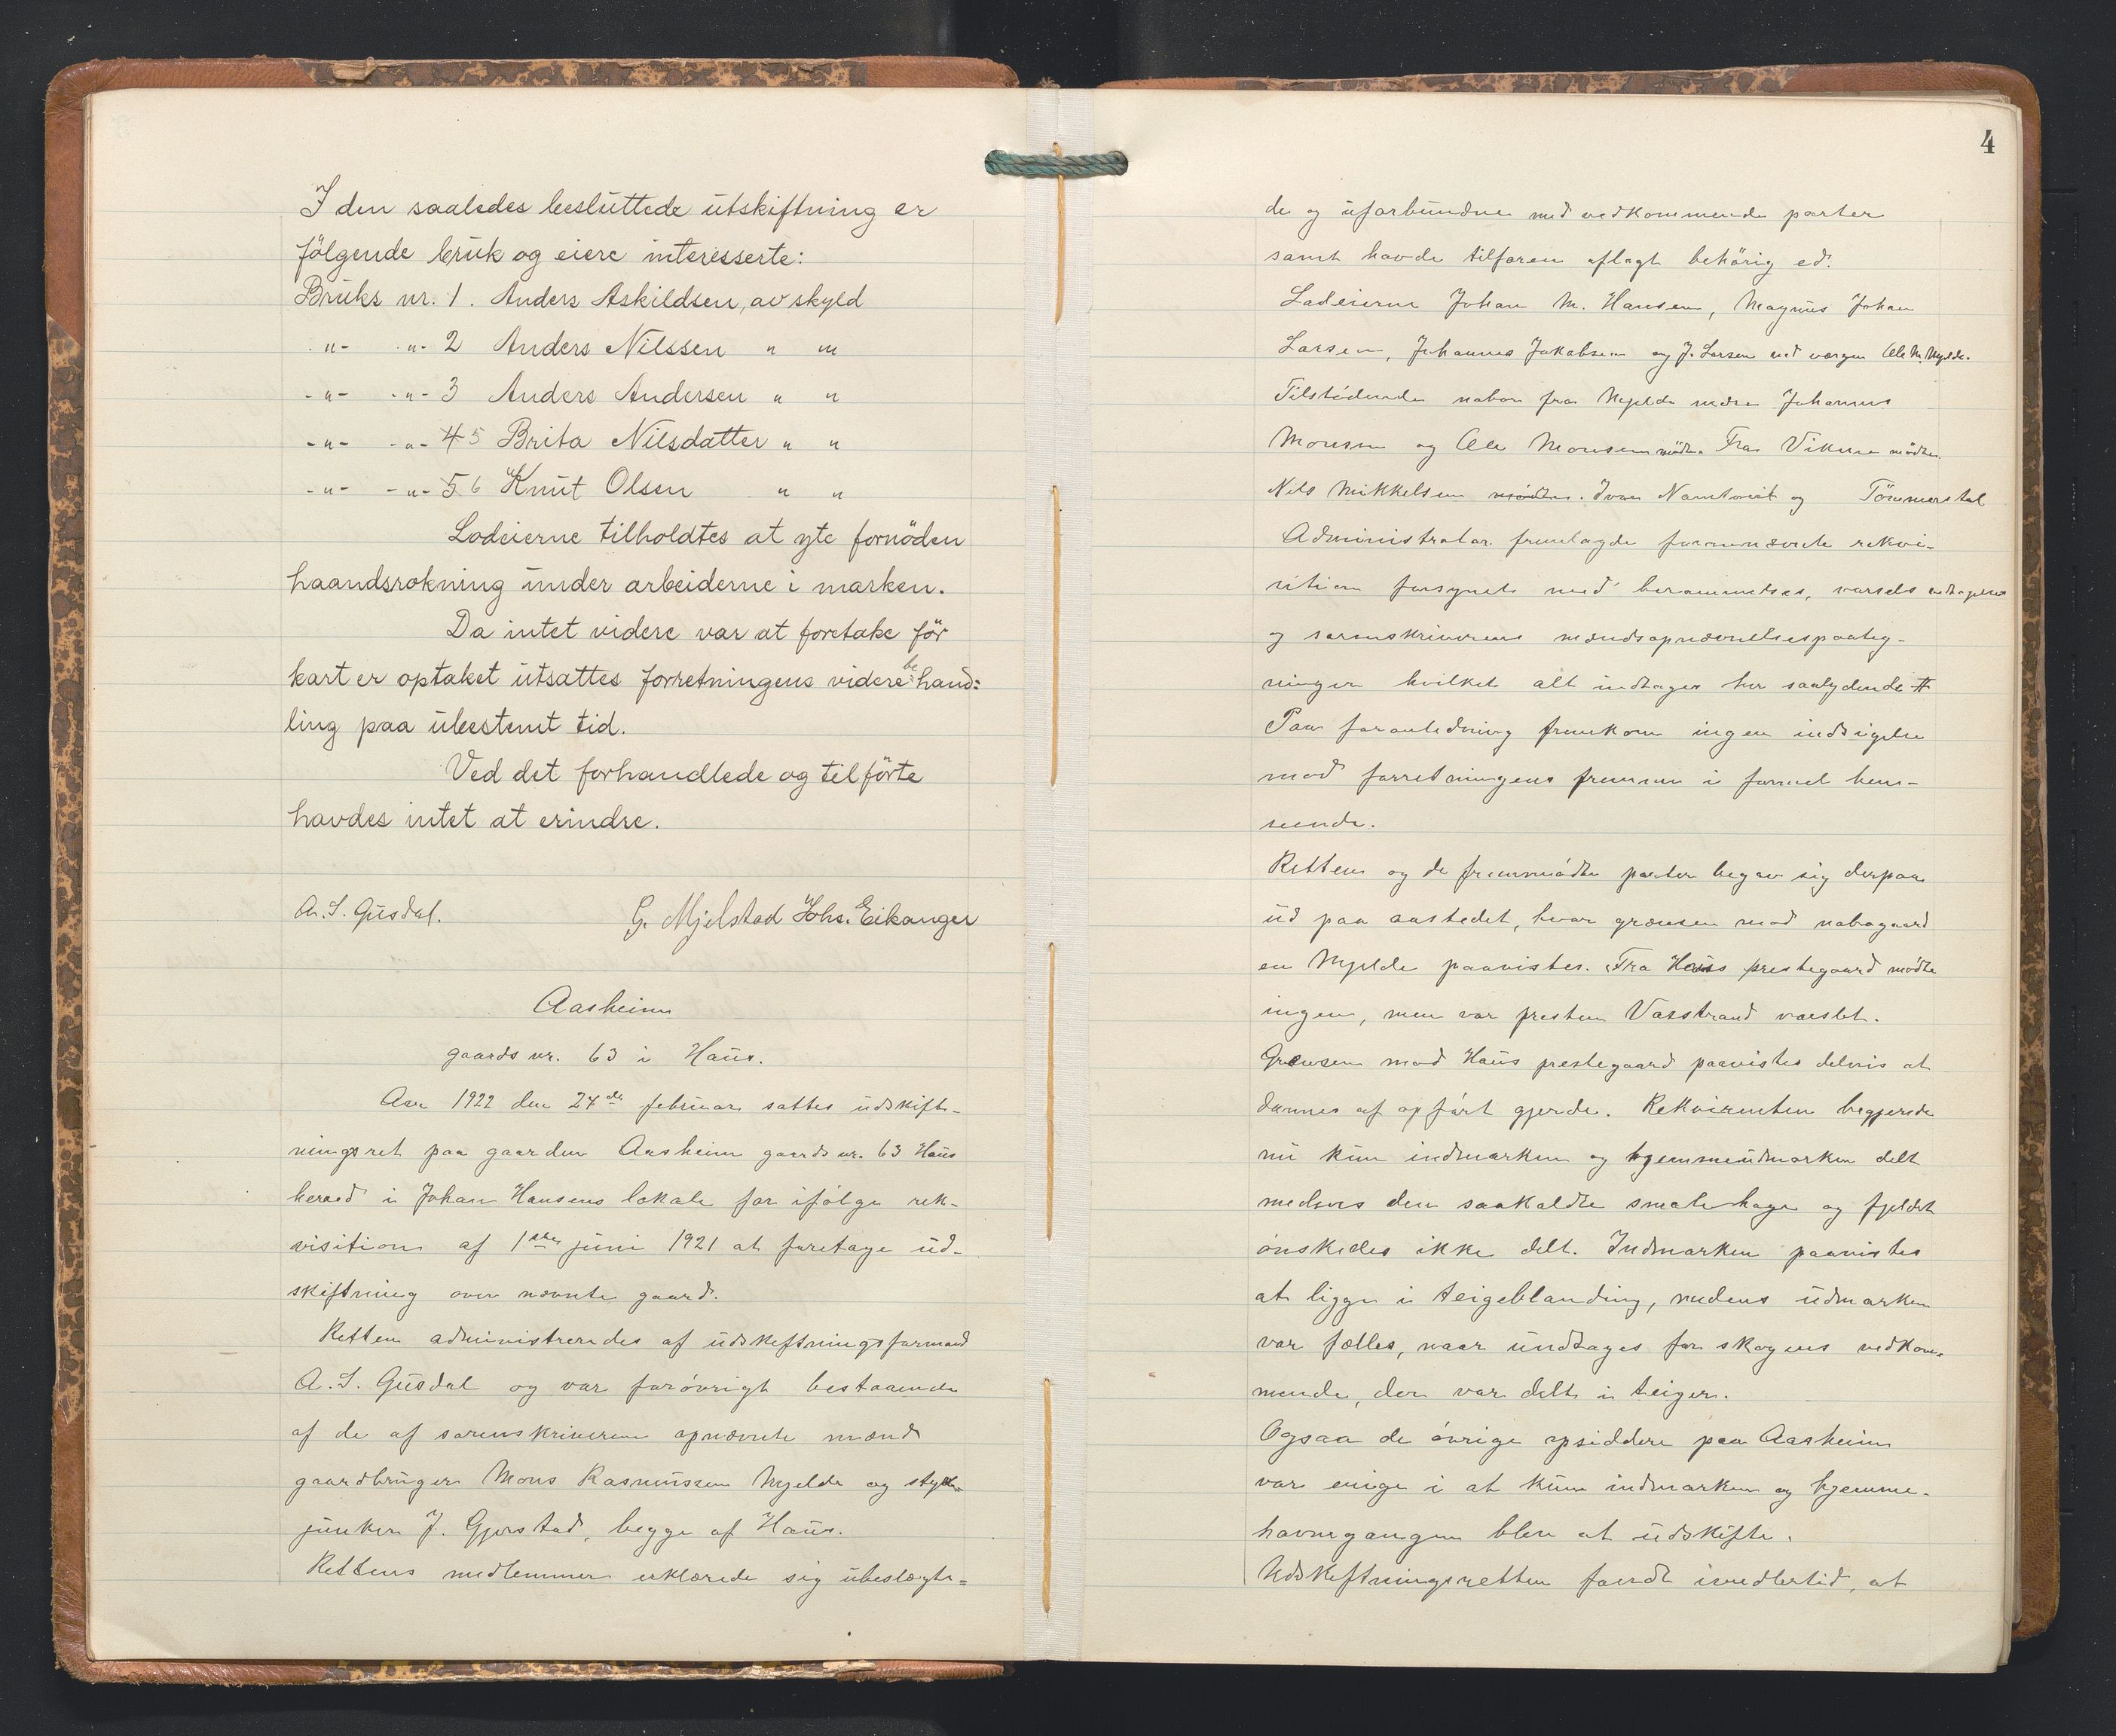 I den saaledes besluttede utskiftning er
følgende bruk og eiere interesserte:
Bruks nr. 1. Anders Askildsen, av skyld
-"- -"- 2 Anders Nilssen " "
-"- -"- 3 Anders Andersen " "
-"- -"- 4 5 Brita Nilsdatter " "
-"- -"- 5 6 Knut Olsen " "
Lodeierne tilholdtes at yte fornöden
haandsrækning under arbeiderne i marken.
Da intet videre var at foretake för
kart er optaket utsattes forretningens videre behand=
ling paa ubestemt tid.
Ved det forhandlede og tilförte
havdes intet at erindre.
A. S. Gusdal. G. Mjelstad Johs. Eikanger
Aasheim
gaards nr. 63 i Haus.
Aar 1922 den 24de februar sattes udskift-
ningsret paa gaarden Aasheim gaards nr. 63 Haus
herred i Johan Hansens lokale for ifölge rek-
visition af 1ste juni 1921 at foretage ud-
skiftning over nævnte gaard.
Retten administreredes af udskiftningsformand
A. S. Gusdal og var forövrigt bestaaende
af de af sorenskriveren opnævnte mænd
gaardbruger Mons Rasmussen Mjelde og styk-
junker J. Gjerstad, begge af Haus.
Rettens medlemmer erklærede sig ubeslægte=
4
de og uforbundne med vedkommende parter
samt havde tilforn aflagt behörig ed.
Lodeierne Johan M. Hansen, Magnus Johan
Larsen, Johannes Jakobsen og J. Larsen ved værgen Ole M. Mjelde.
Tilstödende naboer fra Mjelde nedre Johannes
Monsen og Ole Monsen mödte. Fra Vikne mödte
Nils Mikkelsen mödte. Ivar og Tömmerstøl
Administrator fremlagde foranævnte rekvi-
sition forsynet med berammelses, varsels
og sorenskriverens mændsopnævnelsespaateg-
ninger hvilket alt indtages her saalydende #
Paa foranledning fremkom ingen indsigelse
mod forretningens fremme i formel hen-
seende.
Retten og de fremmödte parter begav sig derpaa
ud paa aastedet, hvor grænsen mod nabogaard
en Mjelde paavistes. Fra Haus prestegaard mödte
ingen, men var presten Vasstrand varslet.
Grænsen mod Haus prestegaard paavistes delvis at
dannes af opfört gjerde. Rekvirenten begjærede
nu kun indmarken og hjemmeudmarken delt
medens den saakaldte smalehage og fjeldet
önskedes ikke delt. Indmarken paavistes
at ligge i teigeblanding, medens udmarken
var fælles, naar undtages for skogens vedkom-
mende, der var delt i teiger.
Ogsaa de övrige opsiddere paa Aasheim
var enige i at kun indmarken og hjemme-
havnegangen blev at udskifte.
Udskiftningsretten fandt imidlertid, at